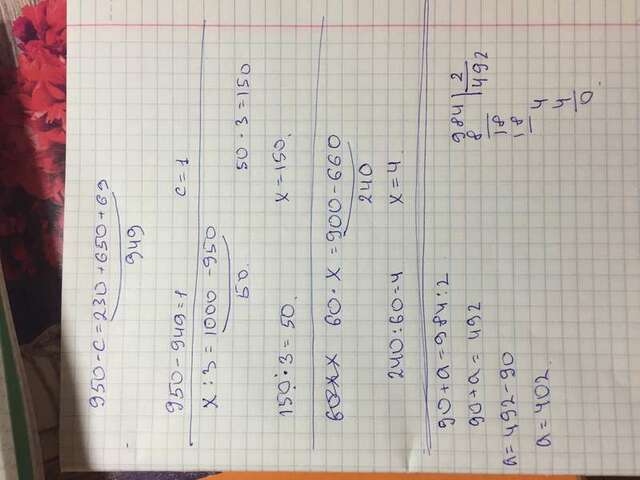 950-c=230+650+69
949
950-949=1 c=1
x:3=1000-950
50. 50·3=150
150:3=50. x=150.
60·x=900-660
240
240:60=4 x=4.
90+a=984:2
90+a=492
a=492-90
a=402.
984 2
8 492
18
18
4
4
0